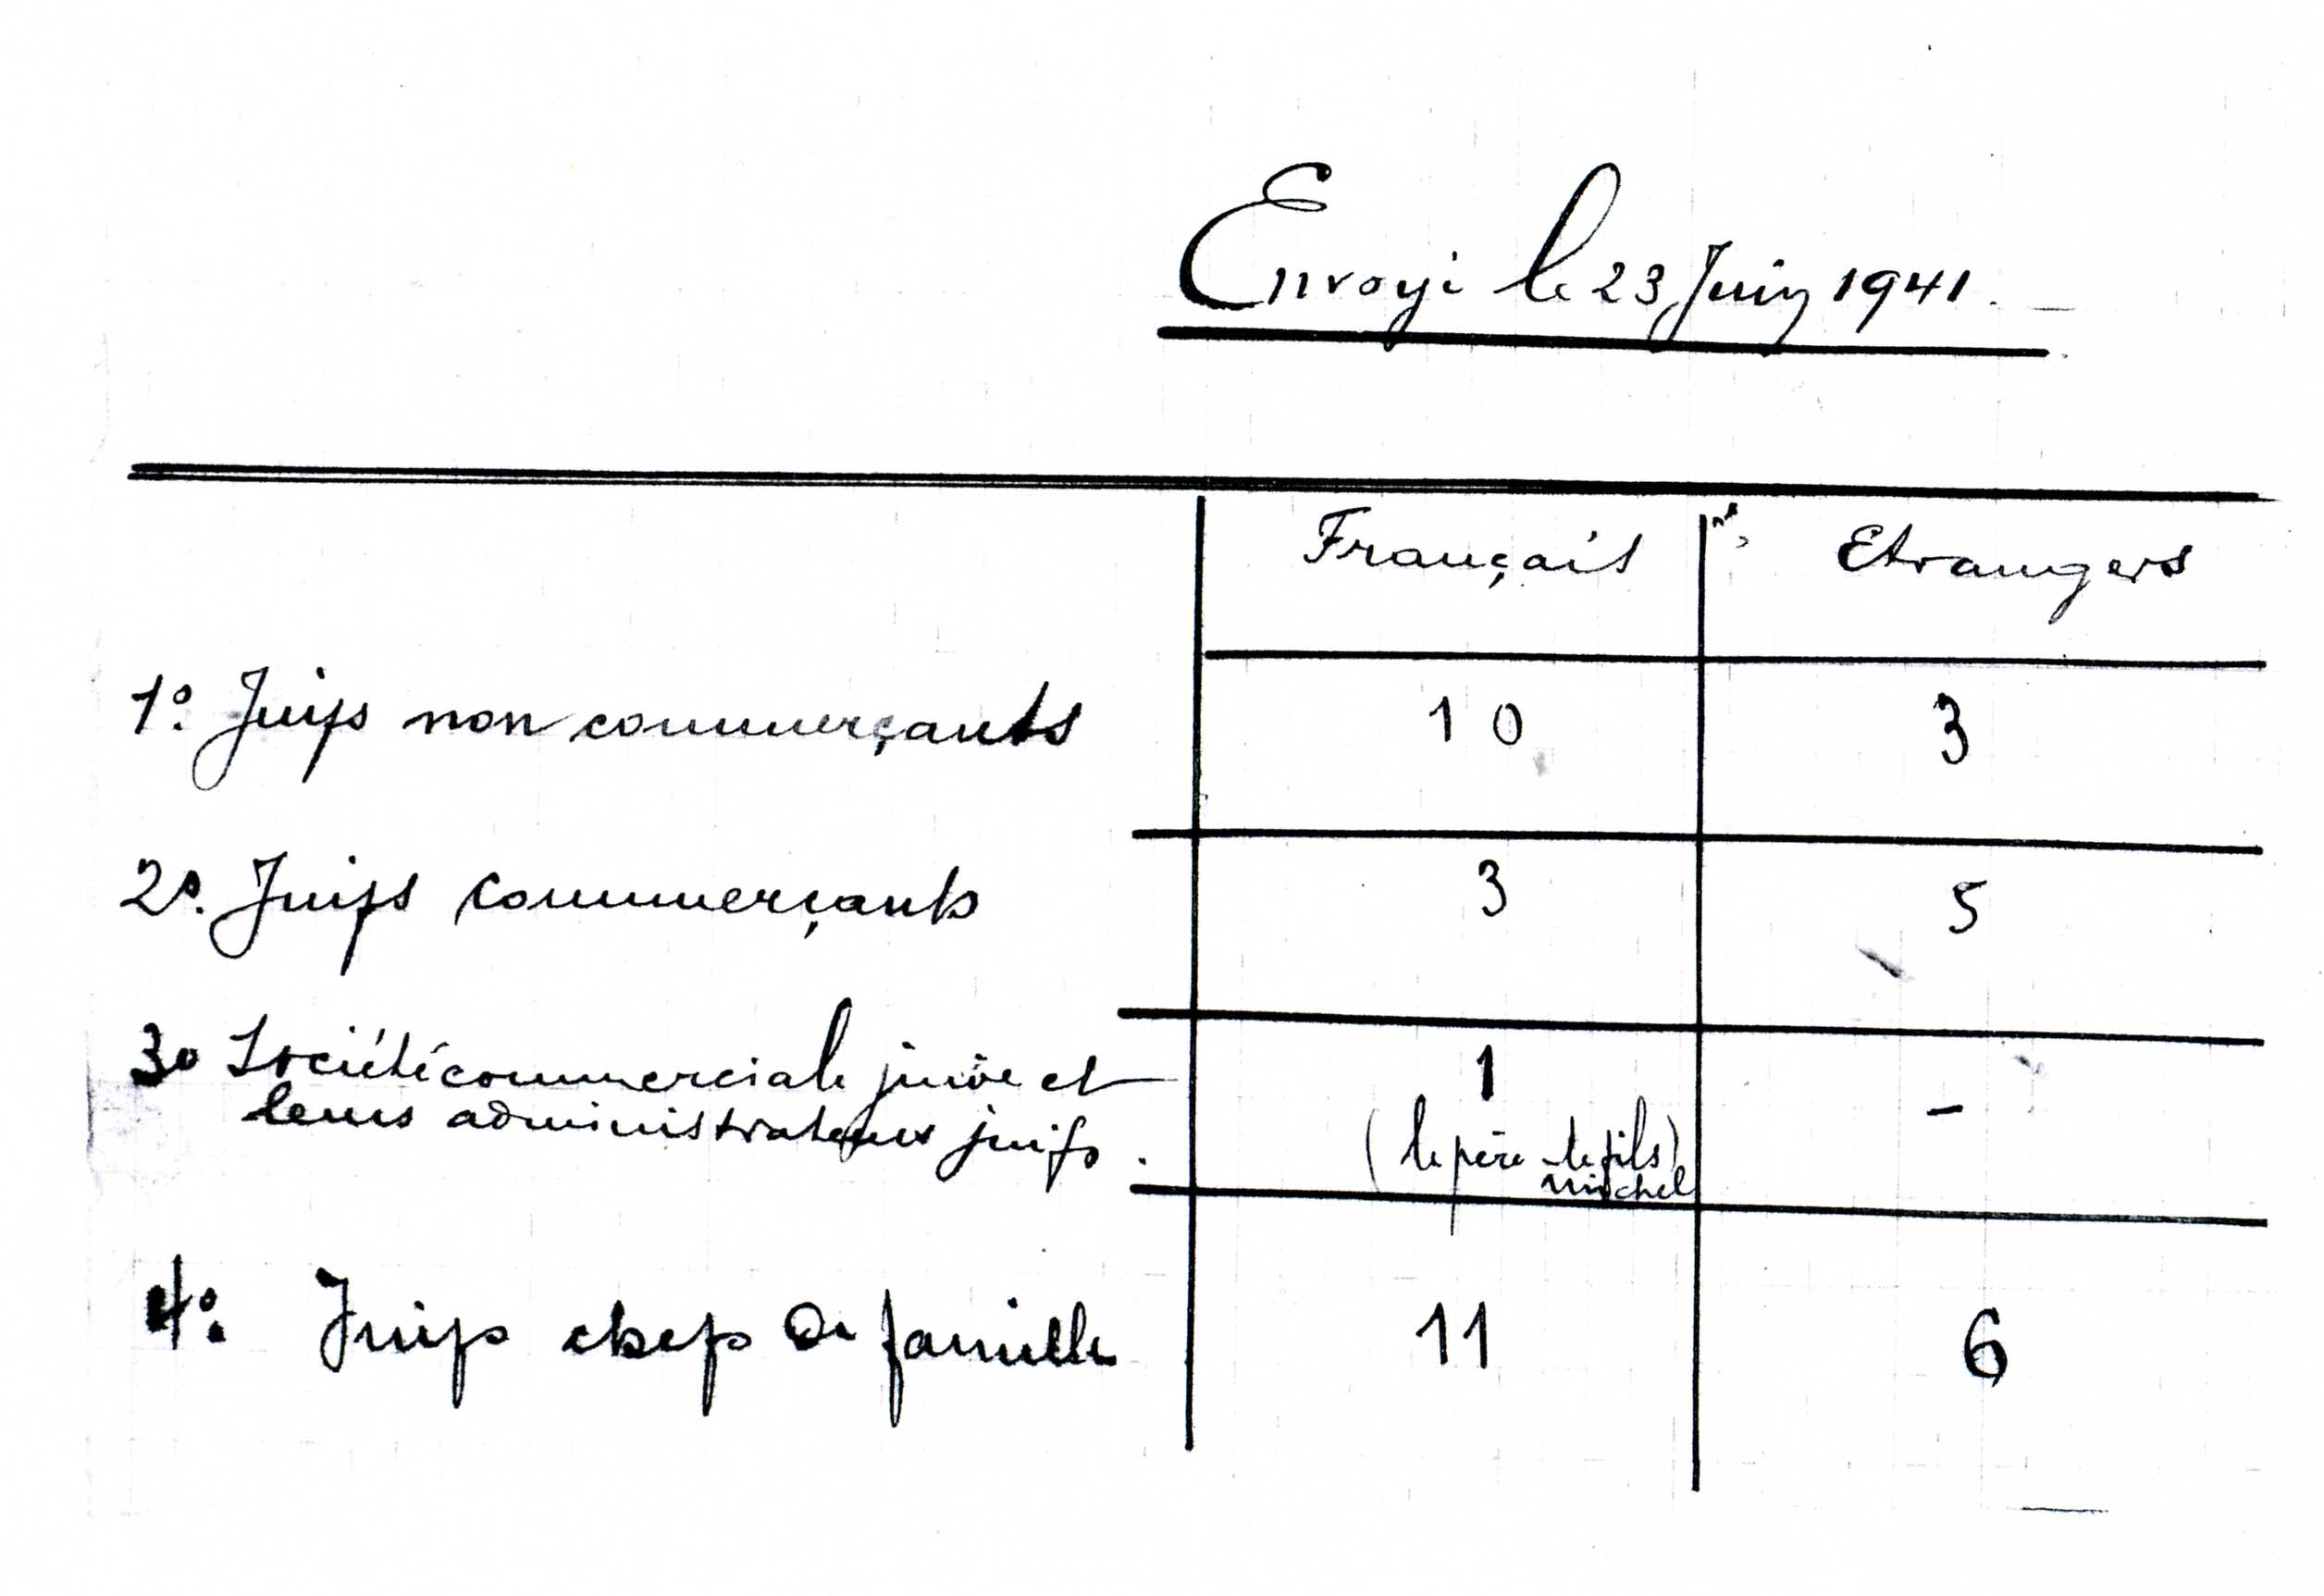 Envoyé le 23 Juin 1941.
Français Etrangers
1º. Juifs non commerçants 10 3
2º. Juifs commerçants 3 5
3º Société commerciale juive et 1 -
leurs administrateurs juifs. (le père le fils)
michel
4º. Juifs chefs de famille 11 6